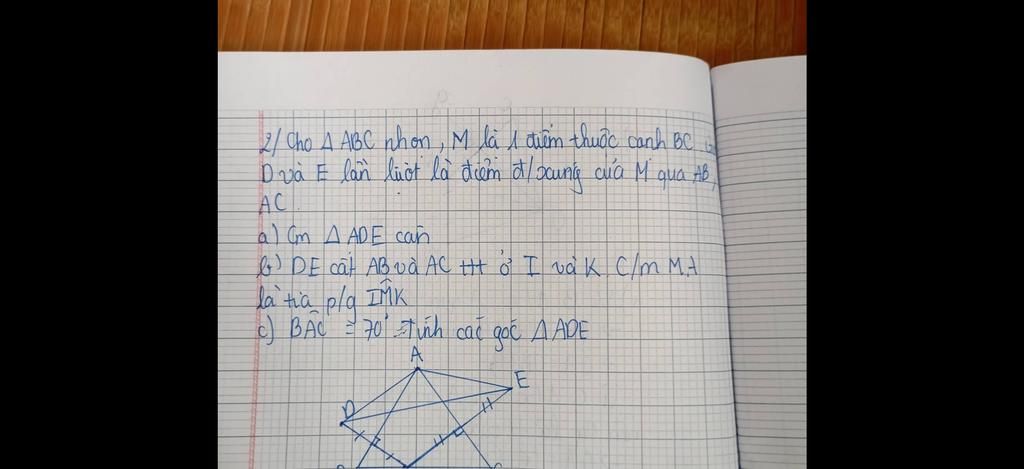 2/ Cho Δ ABC nhọn, M là 1 điểm thuộc cạnh BC
D và E lần lượt là điểm đ/xưng của M qua AB,
AC.
a) Cm Δ ADE cân
b) DE cắt AB và AC +t+ ở I và K C/m MA
là tia p/g IMK
c) BAC = 70° tính các góc Δ ADE
A
E
D